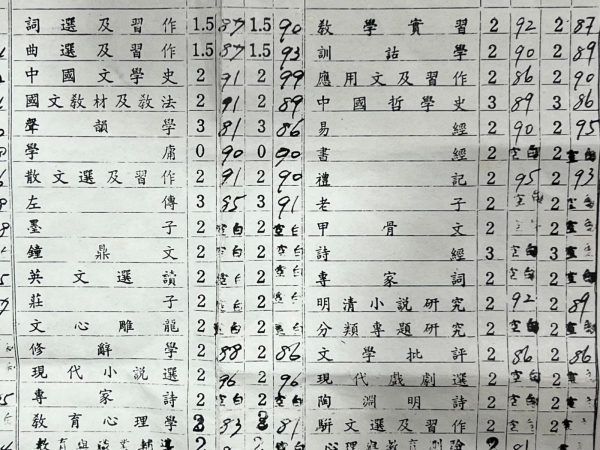 詞選及習作 1.5 87 1.5 90 教學實習 2 92 2 87
曲選及習作 1.5 87 1.5 93 訓詁學 2 90 2 89
中國文學史 2 91 2 99 應用文及習作 2 86 2 90
國文教材及教法 2 91 2 89 中國哲學史 3 89 3 86
聲韻學 3 81 3 86 易經 2 90 2 95
學庸 0 90 0 90 書經 2 空白 2 空白
散文選及習作 2 91 2 90 禮記 2 95 2 93
左傳 3 85 3 91 老子 2 空白 2 空白
墨子 2 空白 2 空白 甲骨文 2 空白 2 空白
鐘鼎文 2 空白 2 空白 詩經 3 空白 3 空白
英文選讀 2 空白 2 空白 專家詞 2 空白 2 空白
莊子 2 空白 2 空白 明清小說研究 2 92 2 89
文心雕龍 2 空白 2 空白 分類專題研究 2 空白 2 空白
修辭學 2 88 2 86 文學批評 2 86 2 86
現代小說選 2 96 2 96 現代戲劇選 2 空白 2 空白
專家詩 2 空白 2 空白 陶淵明詩 2 空白 2 空白
教育心理學 83 81 駢文選及習作 2 空白 2 空白
2 2 空白 心理與教育測驗 2 91